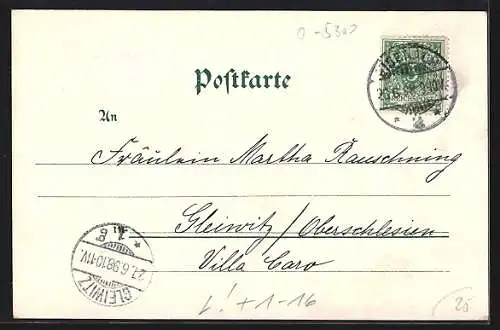 0-5307
Postkarte
An
Fräulein Martha Rauschning
Gleiwitz / Oberschlesien
Villa Caro
GLEIWITZ
27.6.98.10-11V.
L! + 1-16
25